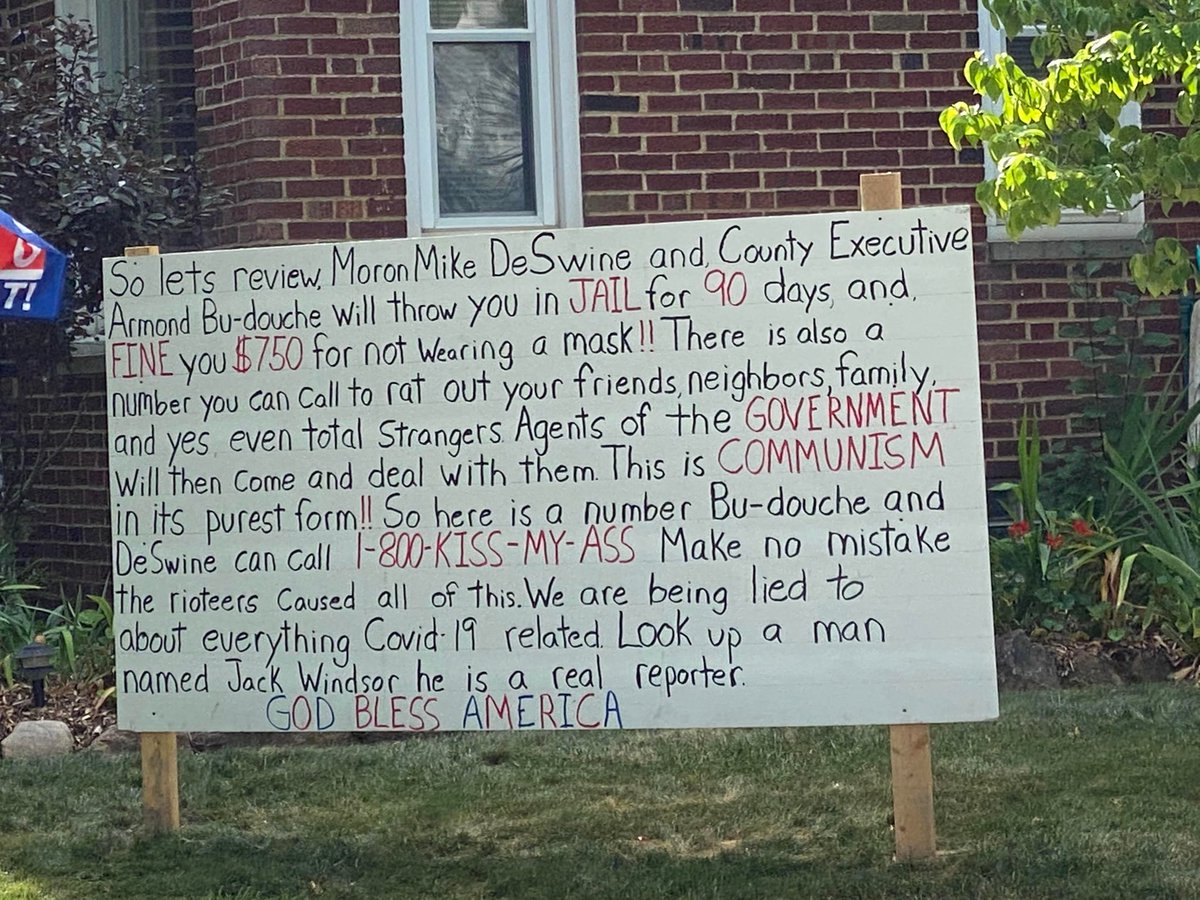 T!
So lets review, Moron Mike DeSwine and, County Executive
Armond Bu-douche will throw you in JAIL for 90 days, and,
FINE you $750 for not wearing a mask!! There is also a
number you can call to rat out your friends, neighbors, family,
and yes, even total Strangers. Agents of the GOVERNMENT
will then come and deal with them. This is COMMUNISM
in its purest form!! So here is a number Bu-douche and
DeSwine can call 1-800-KISS-MY-ASS Make no mistake
the rioteers caused all of this. We are being lied to
about everything Covid-19 related. Look up a man
named Jack Windsor he is a real reporter.
GOD BLESS AMERICA